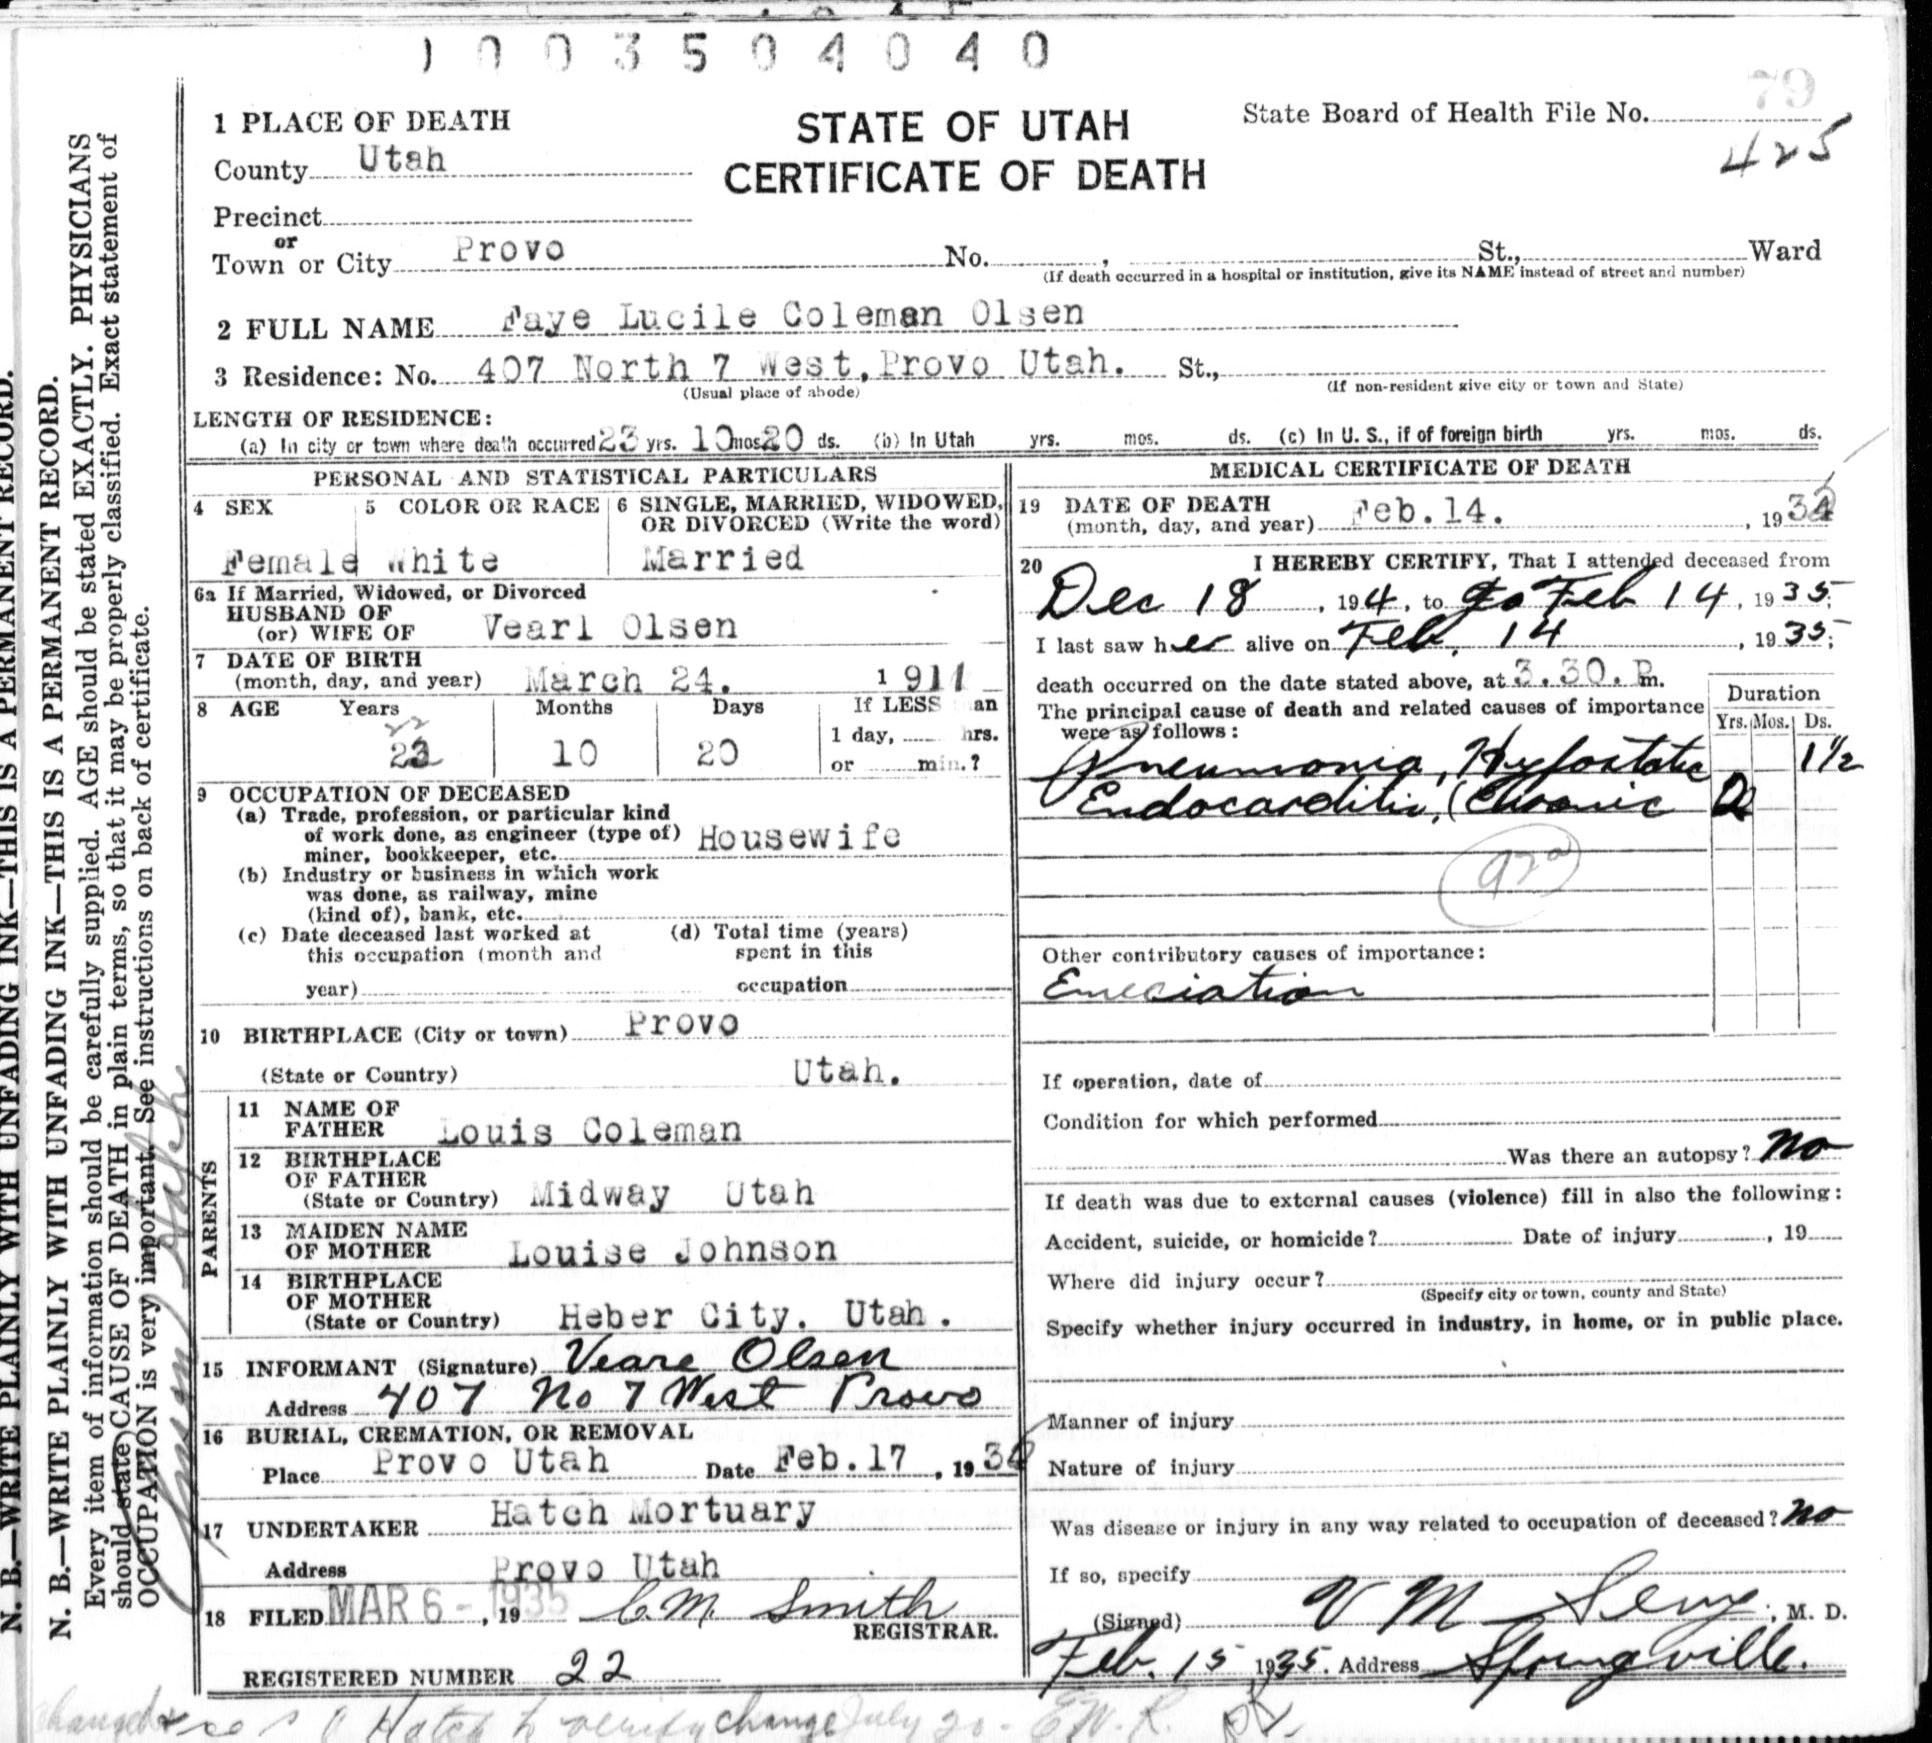 1 0 0 3 5 0 4 0 4 0
79
State Board of Health File No.
425
STATE OF UTAH
CERTIFICATE OF DEATH
1 PLACE OF DEATH
County Utah
Precinct
or
Town or City Provo No. , St., Ward
(If death occurred in a hospital or institution, give its NAME instead of street and number)
2 FULL NAME Faye Lucile Coleman Olsen
3 Residence: No. 407 North 7 West, Provo Utah. St.,
(Usual place of abode) (If non-resident give city or town and State)
LENGTH OF RESIDENCE:
(a) In city or town where death occurred 23 yrs. 10 mos. 20 ds. (b) In Utah yrs. mos. ds. (c) In U. S., if of foreign birth yrs. mos. ds.
PERSONAL AND STATISTICAL PARTICULARS
4 SEX 5 COLOR OR RACE 6 SINGLE, MARRIED, WIDOWED,
OR DIVORCED (Write the word)
Female White Married
6a If Married, Widowed, or Divorced
HUSBAND OF
(or) WIFE OF Vearl Olsen
7 DATE OF BIRTH
(month, day, and year) March 24. 1 911
8 AGE Years Months Days If LESS an
1 day, hrs.
23 10 20 or min.?
9 OCCUPATION OF DECEASED
(a) Trade, profession, or particular kind
of work done, as engineer (type of)
miner, bookkeeper, etc. Housewife
(b) Industry or business in which work
was done, as railway, mine
(kind of), bank, etc.
(c) Date deceased last worked at (d) Total time (years)
this occupation (month and spent in this
year) occupation
10 BIRTHPLACE (City or town) Provo
(State or Country) Utah.
PARENTS
11 NAME OF
FATHER Louis Coleman
12 BIRTHPLACE
OF FATHER
(State or Country) Midway Utah
13 MAIDEN NAME
OF MOTHER Louise Johnson
14 BIRTHPLACE
OF MOTHER
(State or Country) Heber City. Utah.
15 INFORMANT (Signature) Vearl Olsen
Address 407 No 7 West Provo
16 BURIAL, CREMATION, OR REMOVAL
Place Provo Utah Date Feb. 17 , 19
17 UNDERTAKER Hatch Mortuary
Address Provo Utah
18 FILED MAR 6 - 1935 , 19 C. M. Smith
REGISTRAR.
REGISTERED NUMBER 22
MEDICAL CERTIFICATE OF DEATH
19 DATE OF DEATH
(month, day, and year) Feb. 14. , 19
20 I HEREBY CERTIFY, That I attended deceased from
Dec 18 , 194, to Feb 14, 1935;
I last saw her alive on Feb. 14 , 1935;
death occurred on the date stated above, at 3.30. P. m.
The principal cause of death and related causes of importance
were as follows:
Duration
Yrs. Mos. Ds.
Pneumonia, Hyfostatic 1½
Endocarditis, (Chronic
92a
Other contributory causes of importance:
Emeciation
If operation, date of
Condition for which performed
Was there an autopsy? No
If death was due to external causes (violence) fill in also the following:
Accident, suicide, or homicide? Date of injury , 19
Where did injury occur?
(Specify city or town, county and State)
Specify whether injury occurred in industry, in home, or in public place.
Manner of injury
Nature of injury
Was disease or injury in any way related to occupation of deceased? No
If so, specify
(Signed) V M , M. D.
Feb. 15 1935. Address Springville.
change July 20 - E.W.R.
N. B.—WRITE PLAINLY WITH UNFADING INK—THIS IS A PERMANENT RECORD.
N. B.—WRITE PLAINLY WITH UNFADING INK—THIS IS A PERMANENT RECORD.
Every item of information should be carefully supplied. AGE should be stated EXACTLY. PHYSICIANS
should state CAUSE OF DEATH in plain terms, so that it may be properly classified. Exact statement of
OCCUPATION is very important. See instructions on back of certificate.